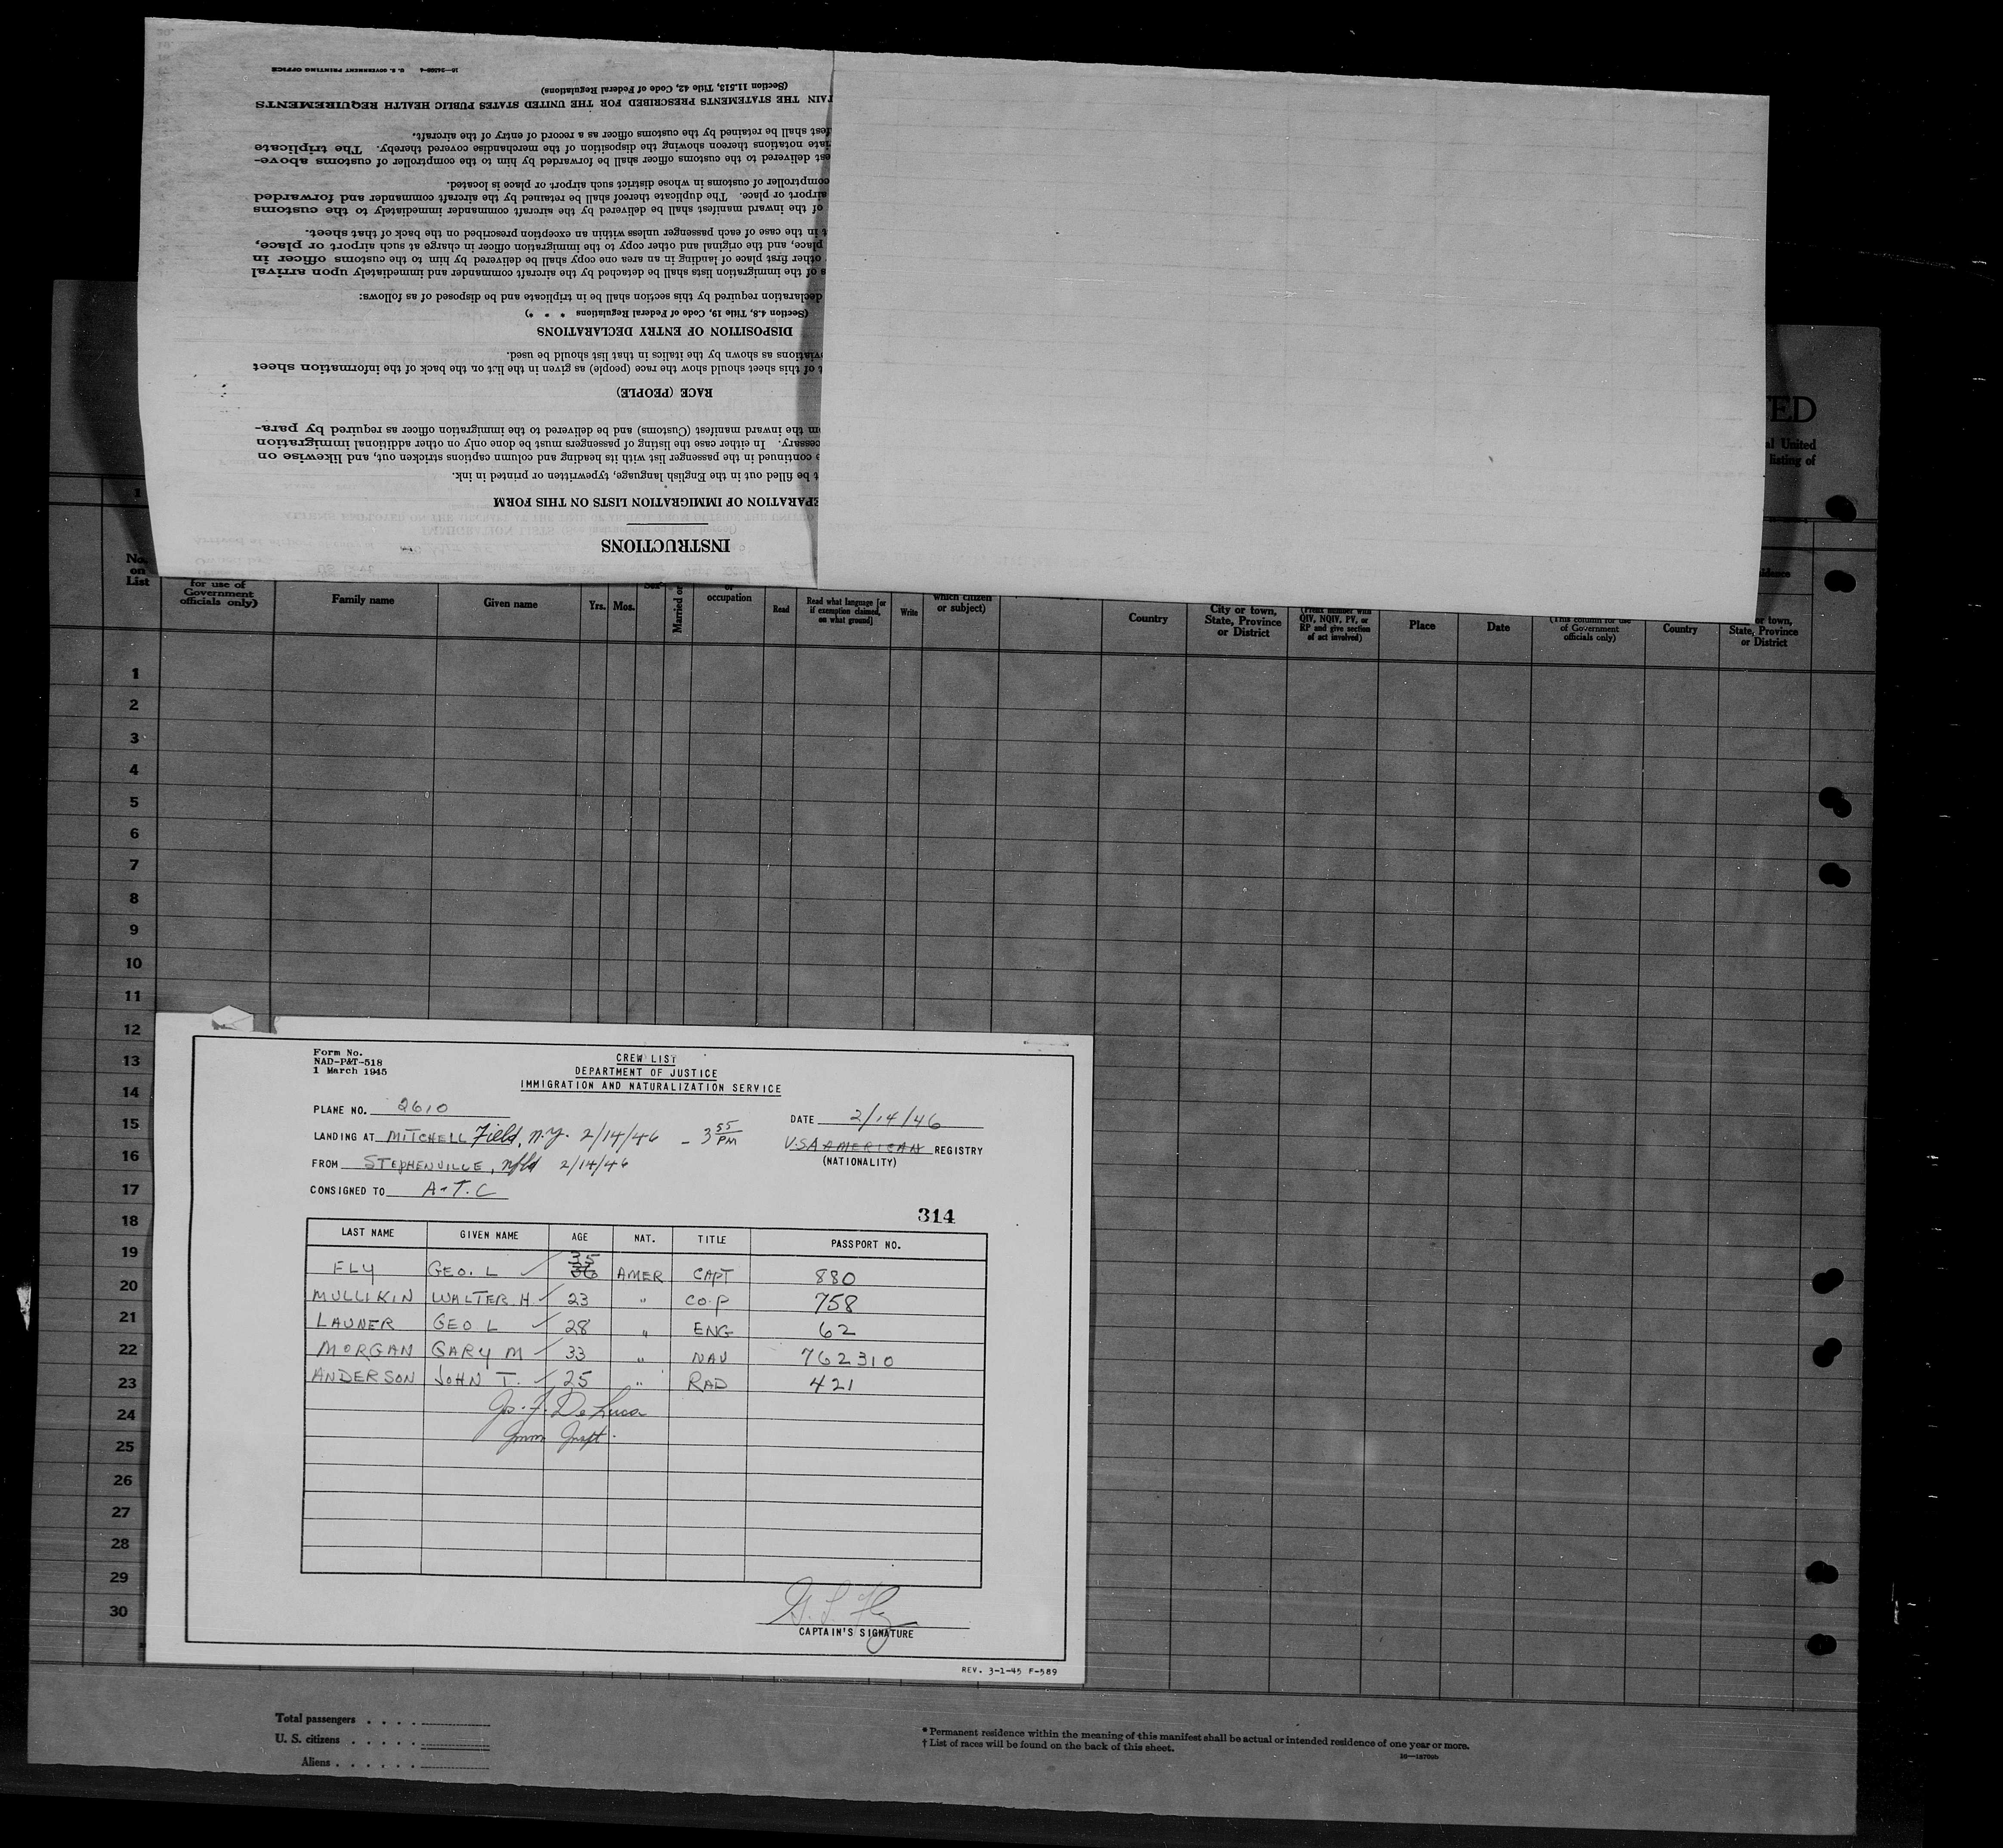 INSTRUCTIONS
PARATION OF IMMIGRATION LISTS ON THIS FORM
be filled out in the English language, typewritten or printed in ink.
continued in the passenger list with its heading and column captions stricken out, and likewise on
cessary. In either case the listing of passengers must be done only on other additional immigration
the inward manifest (Customs) and be delivered to the immigration officer as required by para-
RACE (PEOPLE)
of this sheet should show the race (people) as given in the list on the back of the information sheet
viations as shown by the italics in that list should be used.
DISPOSITION OF ENTRY DECLARATIONS
(Section 4.8, Title 19, Code of Federal Regulations * * *)
declaration required by this section shall be in triplicate and be disposed of as follows:
of the immigration lists shall be detached by the aircraft commander and immediately upon arrival
other first place of landing in an area one copy shall be delivered by him to the customs officer in
place, and the original and other copy to the immigration officer in charge at such airport or place,
in the case of each passenger unless within an exception prescribed on the back of that sheet.
of the inward manifest shall be delivered by the aircraft commander immediately to the customs
airport or place. The duplicate thereof shall be retained by the aircraft commander and forwarded
comptroller of customs in whose district such airport or place is located.
est delivered to the customs officer shall be forwarded by him to the comptroller of customs above-
iate notations thereon showing the disposition of the merchandise covered thereby. The triplicate
fest shall be retained by the customs officer as a record of entry of the aircraft.
TAIN THE STATEMENTS PRESCRIBED FOR THE UNITED STATES PUBLIC HEALTH REQUIREMENTS
(Section 11.513, Title 42, Code of Federal Regulations)
U. S. GOVERNMENT PRINTING OFFICE
TED
al United
listing of
1
No. on List
for use of Government officials only)
Family name
Given name
Yrs.
Mos.
Married or
or occupation
Read
Read what language [or if exemption claimed, on what ground]
Write
which citizen or subject)
Country
City or town, State, Province or District
(Prefix number with QIV, NQIV, PV, or RP and give section of act involved)
Place
Date
(This column for use of Government officials only)
Country
or town, State, Province or District
1
2
3
4
5
6
7
8
9
10
11
12
13
14
15
16
17
18
19
20
21
22
23
24
25
26
27
28
29
30
Form No.
NAD-P&T-518
1 March 1945
CREW LIST
DEPARTMENT OF JUSTICE
IMMIGRATION AND NATURALIZATION SERVICE
PLANE NO. 2610
DATE 2/14/46
LANDING AT MITCHELL Field, N.Y. 2/14/46 - 3 55 PM
U.S.A AMERICAN REGISTRY
(NATIONALITY)
FROM STEPHENVILLE, Nfld 2/14/46
CONSIGNED TO A.T.C
314
LAST NAME GIVEN NAME AGE NAT. TITLE PASSPORT NO.
FLY GEO. L 36 35 AMER CAPT 880
MULLIKIN WALTER H 23 " CO-P 758
LAUNER GEO L 28 " ENG 62
MORGAN GARY M 33 " NAV 762310
ANDERSON JOHN T. 25 " RAD 421
Jos. F. De Luca
Imm Inspt.
G. L. Fly
CAPTAIN'S SIGNATURE
REV. 3-1-45 F-589
Total passengers . . . .
U. S. citizens . . . . .
Aliens . . . . . .
* Permanent residence within the meaning of this manifest shall be actual or intended residence of one year or more.
† List of races will be found on the back of this sheet.